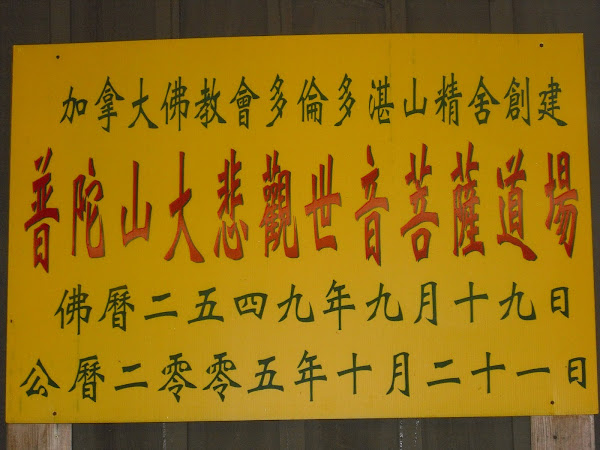 加拿大佛教會多倫多湛山精舍創建
普陀山大悲觀世音菩薩道場
佛曆二五四九年九月十九日
公曆二零零五年十月二十一日